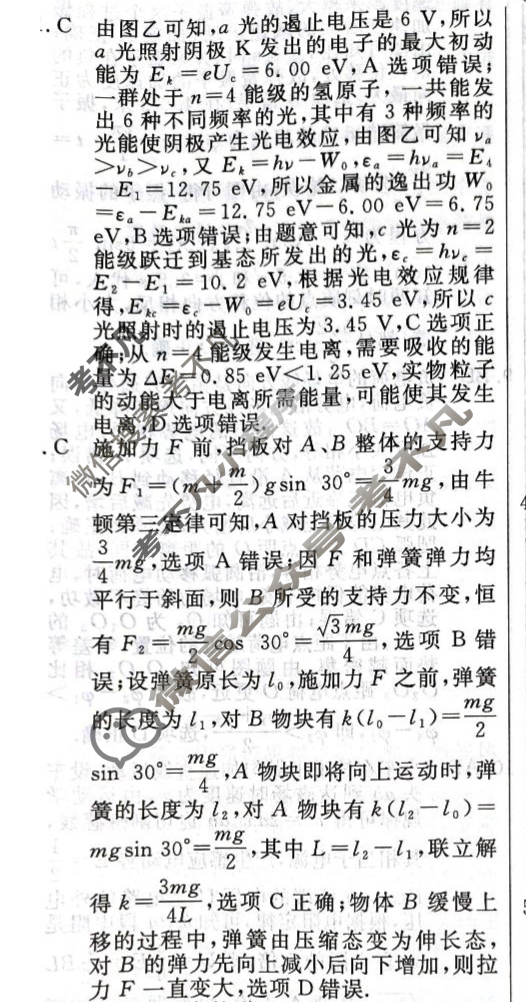 . C 由图乙可知,a 光的遏止电压是 6 V,所以
a 光照射阴极 K 发出的电子的最大初动
能为 Eₖ=eU꜀=6.00 eV,A 选项错误;
一群处于 n=4 能级的氢原子,一共能发
出 6 种不同频率的光,其中有 3 种频率的
光能使阴极产生光电效应,由图乙可知 νₐ
>ν_b>ν_c,又 Eₖ=hν-W₀,εₐ=hνₐ=E₄
-E₁=12.75 eV,所以金属的逸出功 W₀
=εₐ-Eₖₐ=12.75 eV-6.00 eV=6.75
eV,B 选项错误;由题意可知,c 光为 n=2
能级跃迁到基态所发出的光,ε_c=hν_c=
E₂-E₁=10.2 eV,根据光电效应规律
得,E_kc=ε_c-W₀=eU_c=3.45 eV,所以 c
光照射时的遏止电压为 3.45 V,C 选项正
确;从 n=4 能级发生电离,需要吸收的能
量为 ΔE≥0.85 eV<1.25 eV,实物粒子
的动能大于电离所需能量,可能使其发生
电离,D 选项错误.
. C 施加力 F 前,挡板对 A、B 整体的支持力
为 F₁=(m+m/2)gsin 30°=3/4 mg,由牛
顿第三定律可知,A 对挡板的压力大小为
3/4 mg,选项 A 错误;因 F 和弹簧弹力均
平行于斜面,则 B 所受的支持力不变,恒
有 F₂=mg/2 cos 30°=√3mg/4,选项 B 错
误;设弹簧原长为 l₀,施加力 F 之前,弹簧
的长度为 l₁,对 B 物块有 k(l₀-l₁)=mg/2
sin 30°=mg/4,A 物块即将向上运动时,弹
簧的长度为 l₂,对 A 物块有 k(l₂-l₀)=
mgsin 30°=mg/2,其中 L=l₂-l₁,联立解
得 k=3mg/4L,选项 C 正确;物体 B 缓慢上
移的过程中,弹簧由压缩态变为伸长态,
对 B 的弹力先向上减小后向下增加,则拉
力 F 一直变大,选项 D 错误.